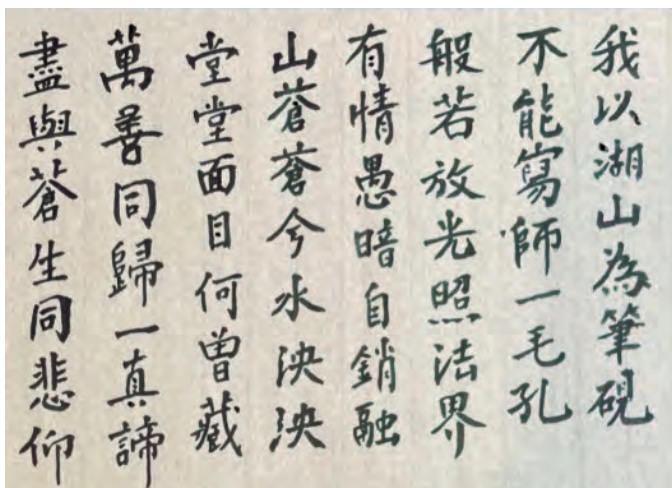 我以湖山為筆硯
不能寫師一毛孔
般若放光照法界
有情愚暗自銷融
山蒼蒼兮水泱泱
堂堂面目何曾藏
萬善同歸一真諦
盡與蒼生同悲仰